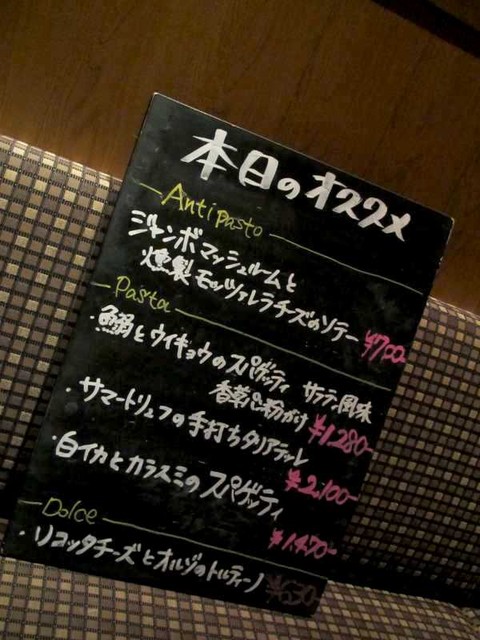 本日のオススメ
Antipasto
ジャンボマッシュルームと
燻製モッツァレラチーズのソテー ¥700-
Pasta
・鰯とウイキョウのスパゲッティ サラテン風味
香草パン粉がけ ¥1,280-
・サマートリュフの手打ちタリアテッレ
¥2,100-
・白イカとカラスミのスパゲッティ
¥1,470-
Dolce
・リコッタチーズとオルヅのトルティーノ ¥630